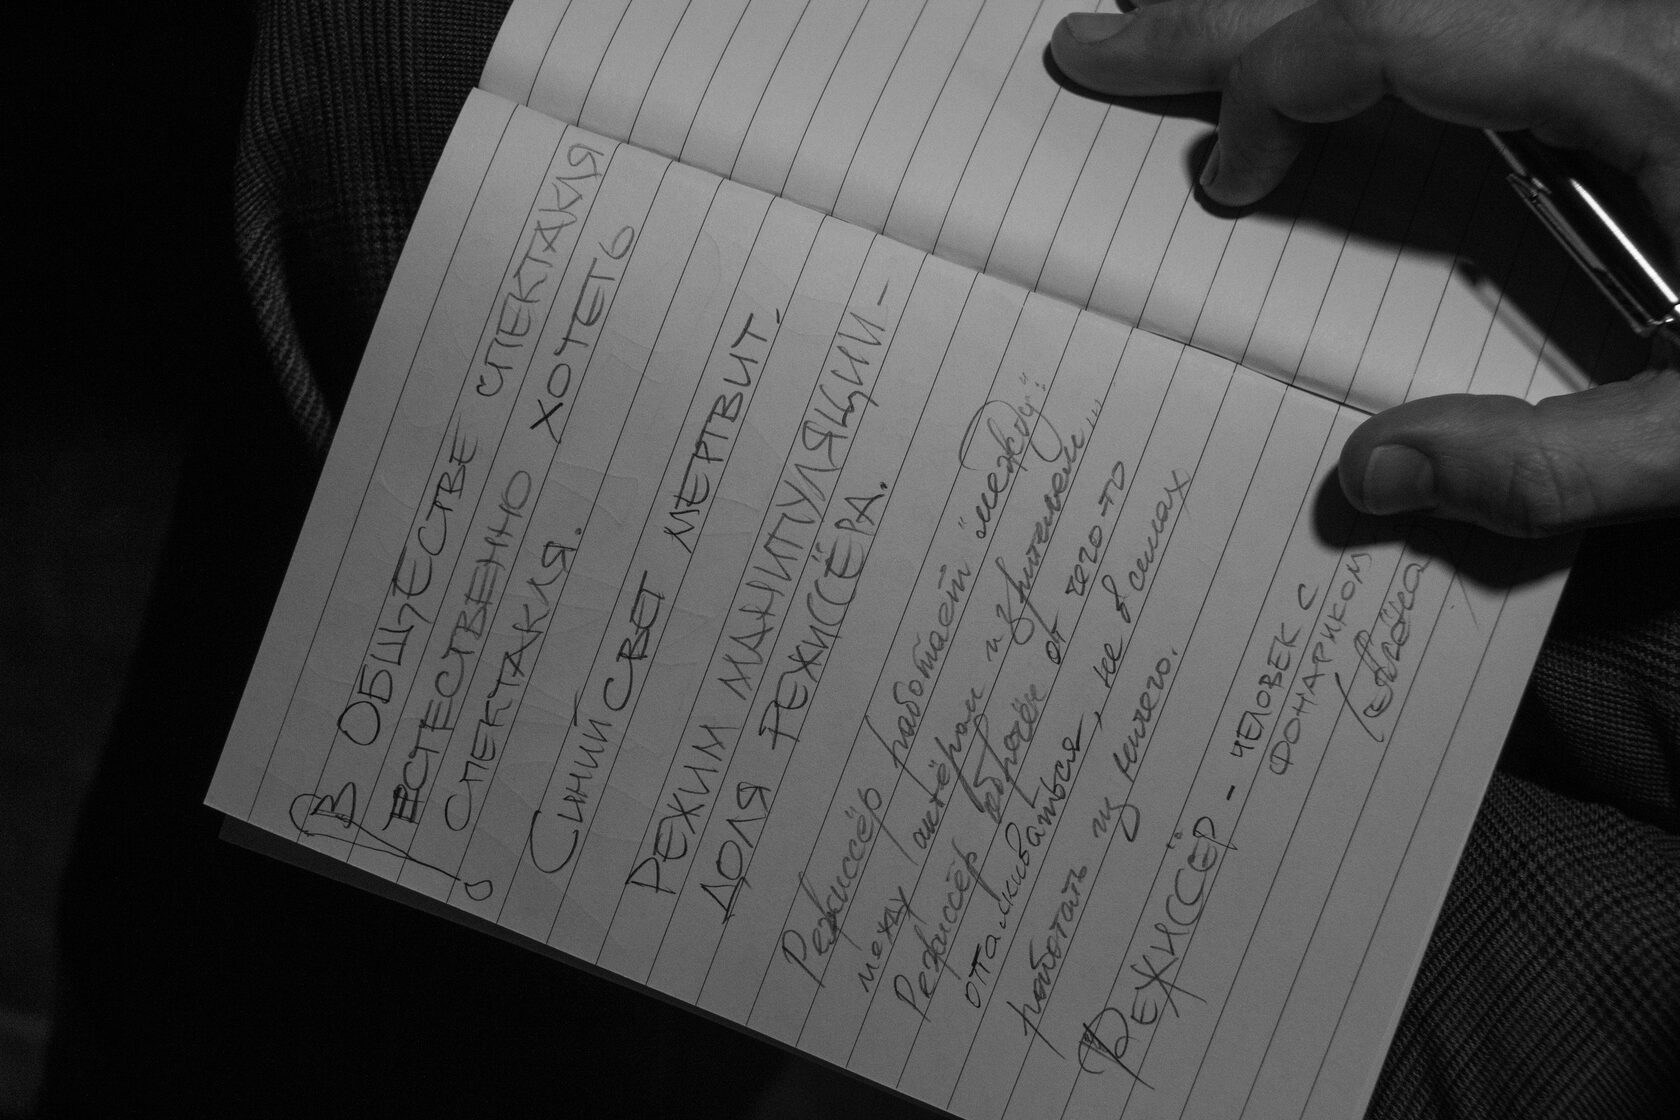 В ОБЩЕСТВЕ СПЕКТАКЛЯ
ЕСТЕСТВЕННО ХОТЕТЬ
СПЕКТАКЛЯ.
СИНИЙ СВЕТ МЕРТВИТ.
РЕЖИМ МАНИПУЛЯЦИИ -
ДОЛЯ РЕЖИССЁРА.
Режиссёр работает "между":
между актёром и зрителем...
Режиссёр обречён от чего-то
отталкиваться, не в силах
работать из ничего.
РЕЖИССЁР - ЧЕЛОВЕК С
ФОНАРИКОМ
(Алёна